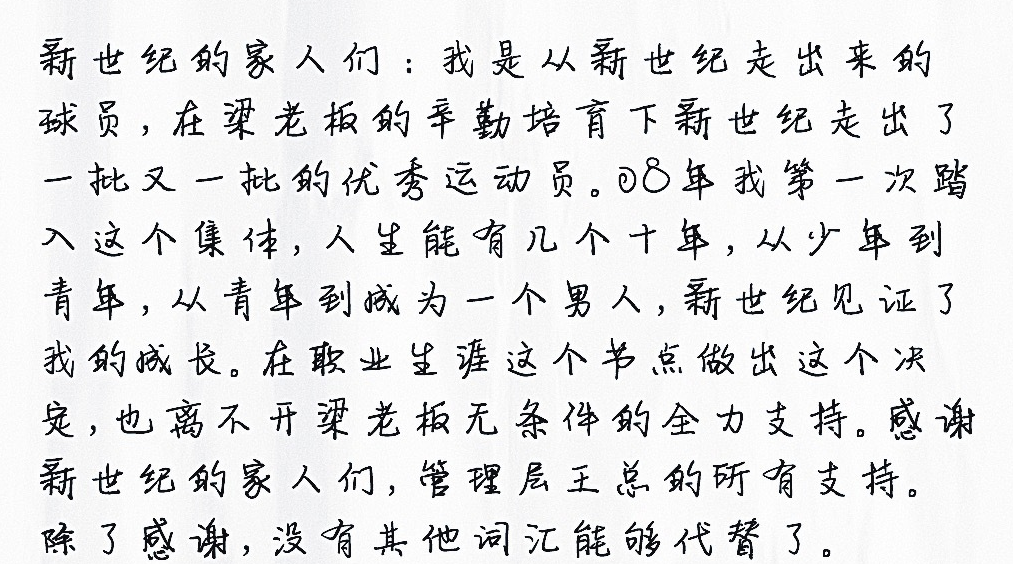 新世纪的家人们：我是从新世纪走出来的
球员，在梁老板的辛勤培育下新世纪走出了
一批又一批的优秀运动员。08年我第一次踏
入这个集体，人生能有几个十年，从少年到
青年，从青年到成为一个男人，新世纪见证了
我的成长。在职业生涯这个节点做出这个决
定，也离不开梁老板无条件的全力支持。感谢
新世纪的家人们，管理层王总的所有支持。
除了感谢，没有其他词汇能够代替了。